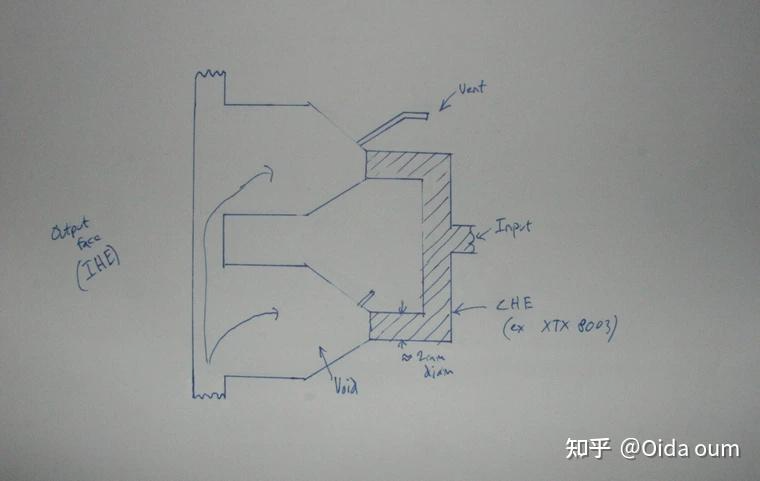 Vent
Output
face
(IHE)
Input
CHE
(ex XTX 8003)
≈ 2mm
diam
Void
知乎 @Oida oum